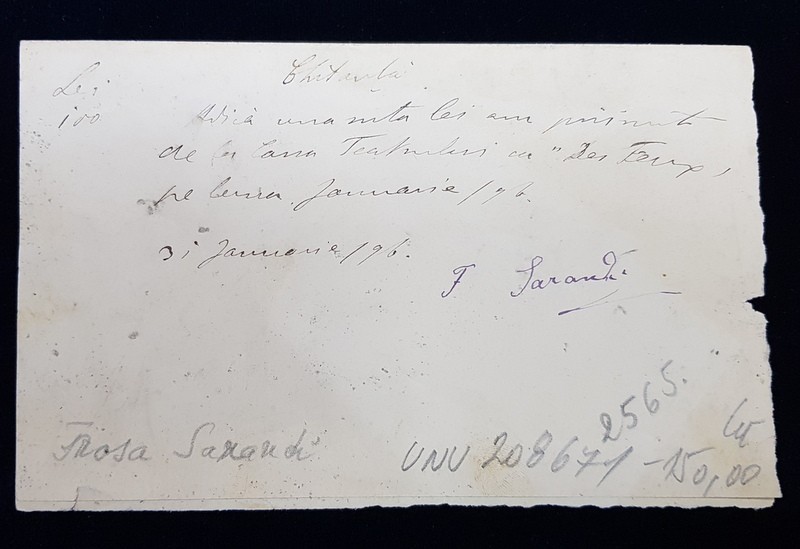 Chitanta
Lei
100
Adică una suta lei am primit
de la Casa Teatrului ca "Des Feux,
pe luna Januarie /96.
31 Januarie /96.
F Sarandi
2565.
Frosa Sarandi
UNU 208671 - 150,00